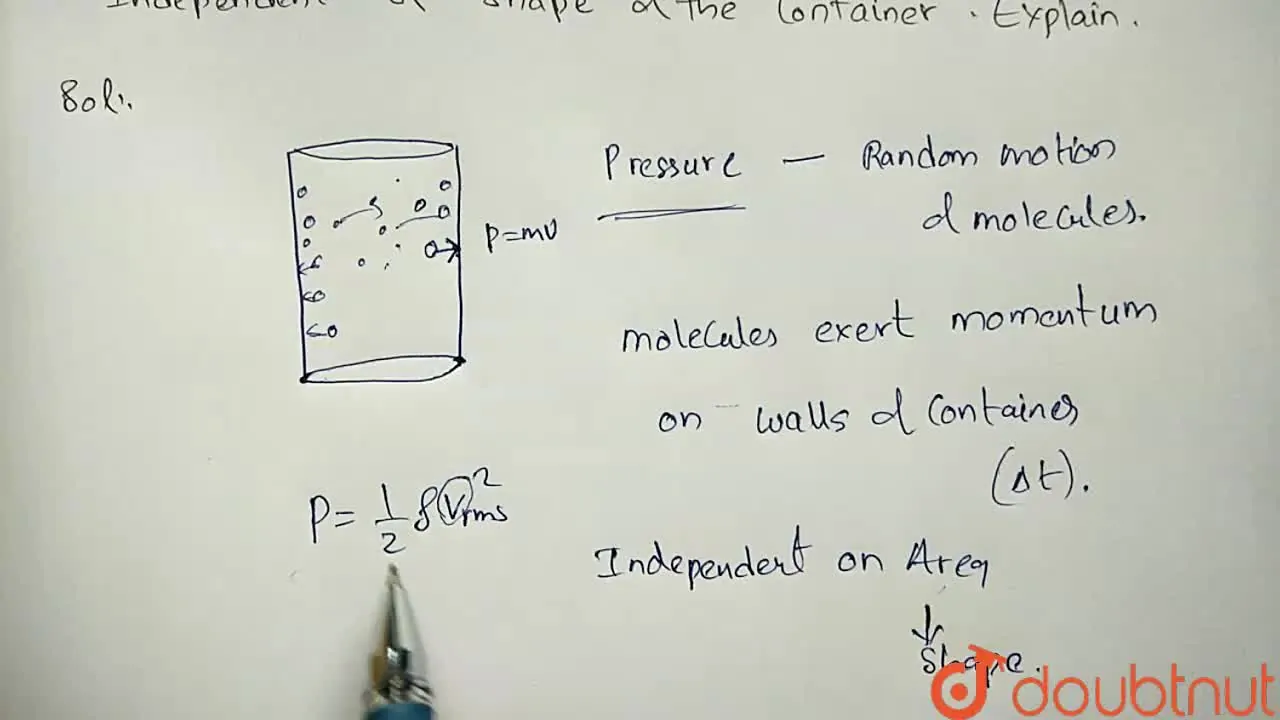 Independent of shape of the Container. Explain.
Sol:.
Pressure — Random motion
of molecules.
P=mv
molecules exert momentum
on walls of Container
(Δt).
P = 1/2 ρ Vrms²
Independent on Area
↓
Shape.
doubtnut